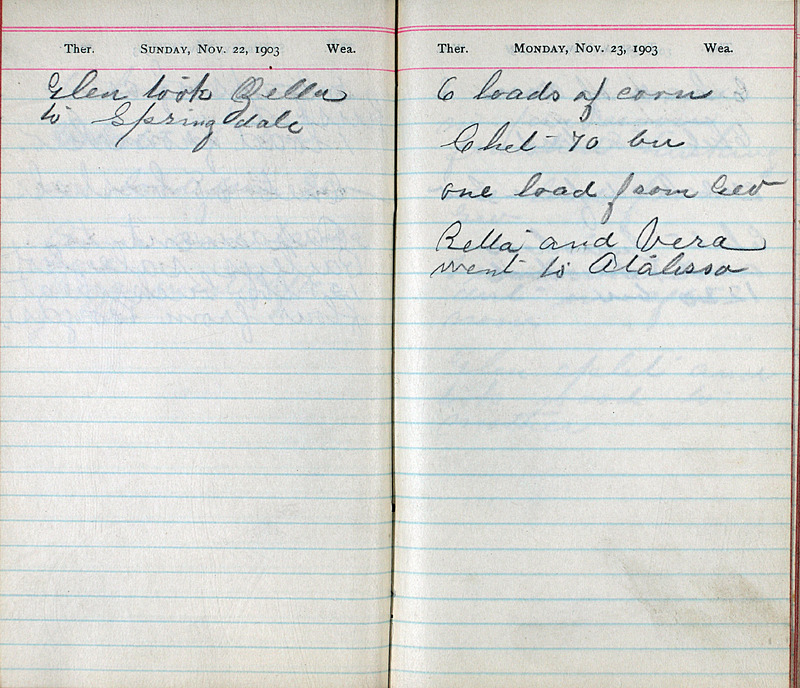 Ther. SUNDAY, NOV. 22, 1903 Wea.
Glen took Rella
to Springdale
Ther. MONDAY, NOV. 23, 1903 Wea.
6 loads of corn
Chet - 70 bu
one load from Geo
Rella and Vera
went to Atalissa